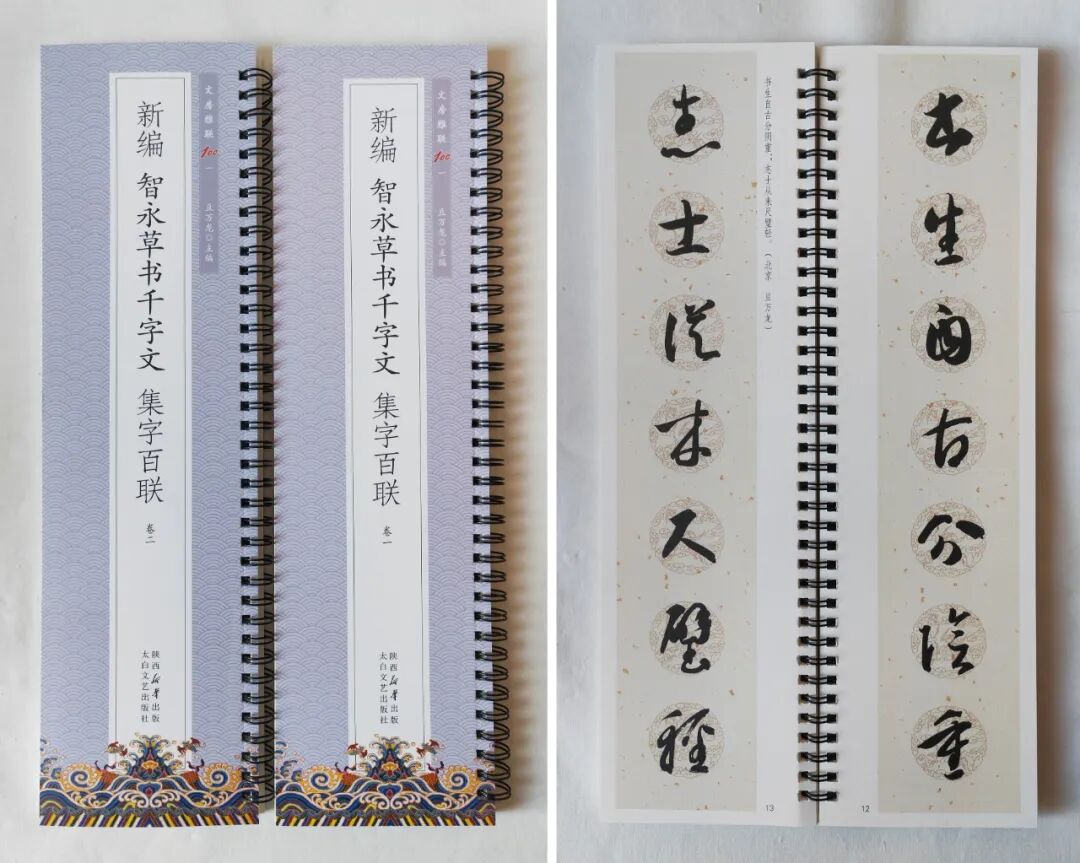 文房雅联100 一
万龙◎主编
新编 智永草书千字文 集字百联 卷二
陕西新华出版
太白文艺出版社
文房雅联100 一
万龙◎主编
新编 智永草书千字文 集字百联 卷一
陕西新华出版
太白文艺出版社
書生自古分陰重
12
书生自古分阴重;志士从来尺璧轻。(北京 万龙)
志士從來尺璧輕
13